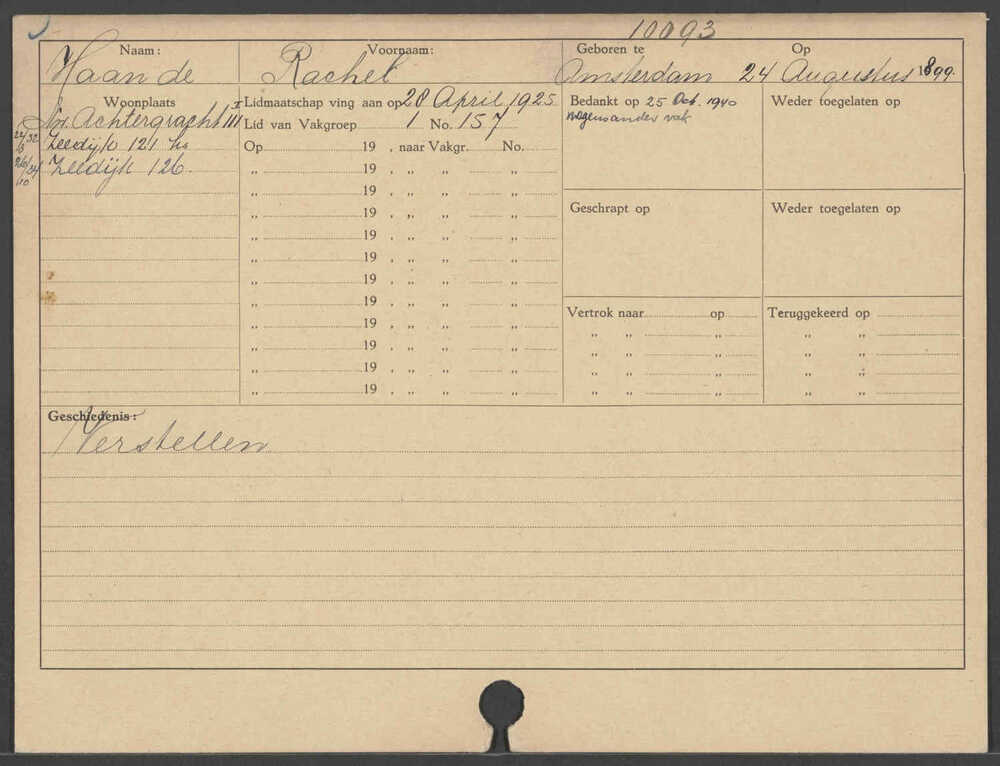 10093
Naam: Voornaam: Geboren te Op
Haan de Rachel Amsterdam 24 Augustus 1899.
Woonplaats Lidmaatschap ving aan op 28 April 1925 Bedankt op 25 Oct. 1940 Weder toegelaten op
Achtergracht 111 I Lid van Vakgroep 1 No. 157 wegens ander vak
Zeedijk 121 hs Op 19 , naar Vakgr. No.
Zeedijk 126. „ 19 , „ „ „
„ 19 , „ „ „
„ 19 , „ „ „ Geschrapt op Weder toegelaten op
„ 19 , „ „ „
„ 19 , „ „ „
„ 19 , „ „ „
„ 19 , „ „ „ Vertrok naar op Teruggekeerd op
„ 19 , „ „ „ „ „ „ „ „
„ 19 , „ „ „ „ „ „ „ „
„ 19 , „ „ „ „ „ „ „ „
„ 19 , „ „ „ „ „ „ „ „
Geschiedenis:
Verstellen